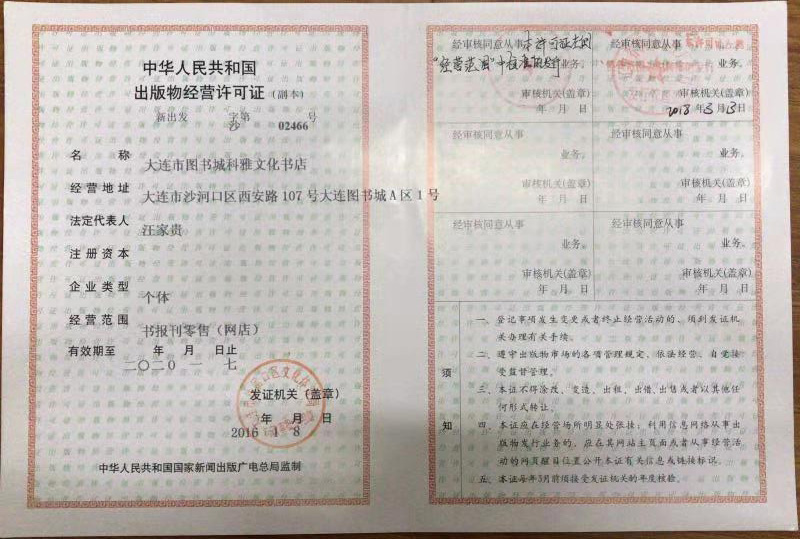 中华人民共和国
出版物经营许可证（副本）
新出发 沙 字第 02466 号
名 称 大连市图书城科雅文化书店
经营地址 大连市沙河口区西安路107号大连图书城A区1号
法定代表人 汪家贵
注册资本
企业类型 个体
经营范围 书报刊零售（网店）
有效期至 年 月 日止
二〇二〇 一 七
发证机关（盖章）
年 月 日
2016 1 8
中华人民共和国国家新闻出版广电总局监制
经审核同意从事
业务。
审核机关(盖章)
年 月 日
经审核同意从事
业务。
审核机关(盖章)
2018年3月13日
经审核同意从事
业务。
审核机关(盖章)
年 月 日
经审核同意从事
业务。
审核机关(盖章)
年 月 日
经审核同意从事
业务。
审核机关(盖章)
年 月 日
经审核同意从事
业务。
审核机关(盖章)
年 月 日
须知
一、登记事项发生变更或者终止经营活动的、须到发证机
关办理有关手续。
二、遵守出版物市场的各项管理规定，依法经营，自觉接
受监督管理。
三、本证不得涂改、变造、出租、出借、出售或者以其他任
何形式转让。
四、本证应在经营场所明显处张挂；利用信息网络从事出
版物发行业务的，应在其网站主页面或者从事经营活
动的网页醒目位置公开本证有关信息或链接标识。
五、本证每年3月前须接受发证机关的年度核验。